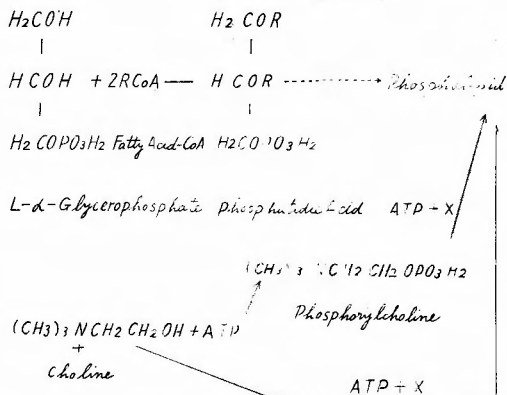 H2COH H2 COR
HCOH + 2RCoA H COR Phospholipid
H2 COPO3H2 Fatty Acid-CoA H2COPO3H2
L-α-Glycerophosphate Phosphatidic Acid ATP + X
(CH3)3 NCH2 CH2 OPO3H2
Phosphorylcholine
(CH3)3 NCH2 CH2 OH + ATP
+
Choline
ATP + X